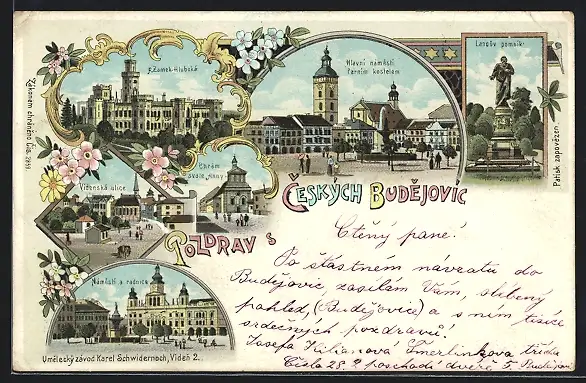 Zámek Hluboká
Hlavní náměstí
Farním kostelem
Lanův pomník
Zákonem chráněno Čís. 2951
Pátisk zapovězen
Vídenská ulice
Chrám
svaté rodiny
Pozdrav s
Českých Budějovic
Náměstí a radnice
Umělecký závod Karel Schwidernoch, Vídeň 2.
Ctěný pane!
Po šťastném návratu do
Budějovic, zasílám Vám, slíbený
pohled, (Budějovice) a s ním tisíce
srdečných pozdravů!
Josefa Kilianová Šmerlinkova třída
Číslo 28. 2 poschodí dvéře 5, Budějovi